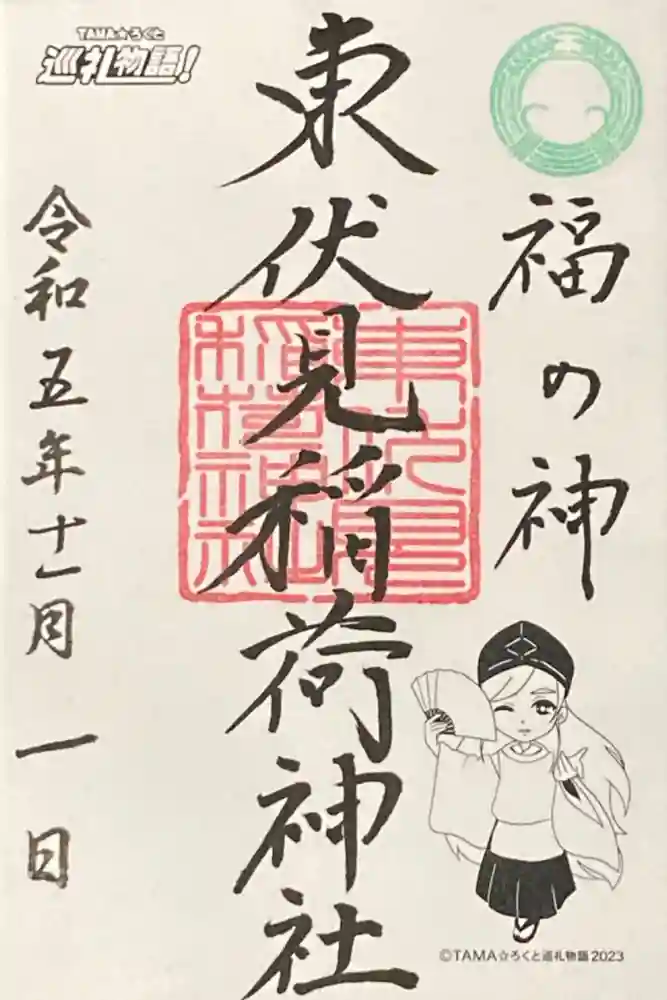 TAMA☆ろくと
巡礼物語!
福の神
東伏見稲荷神社
令和五年十一月一日
©TAMA☆ろくと巡礼物語2023